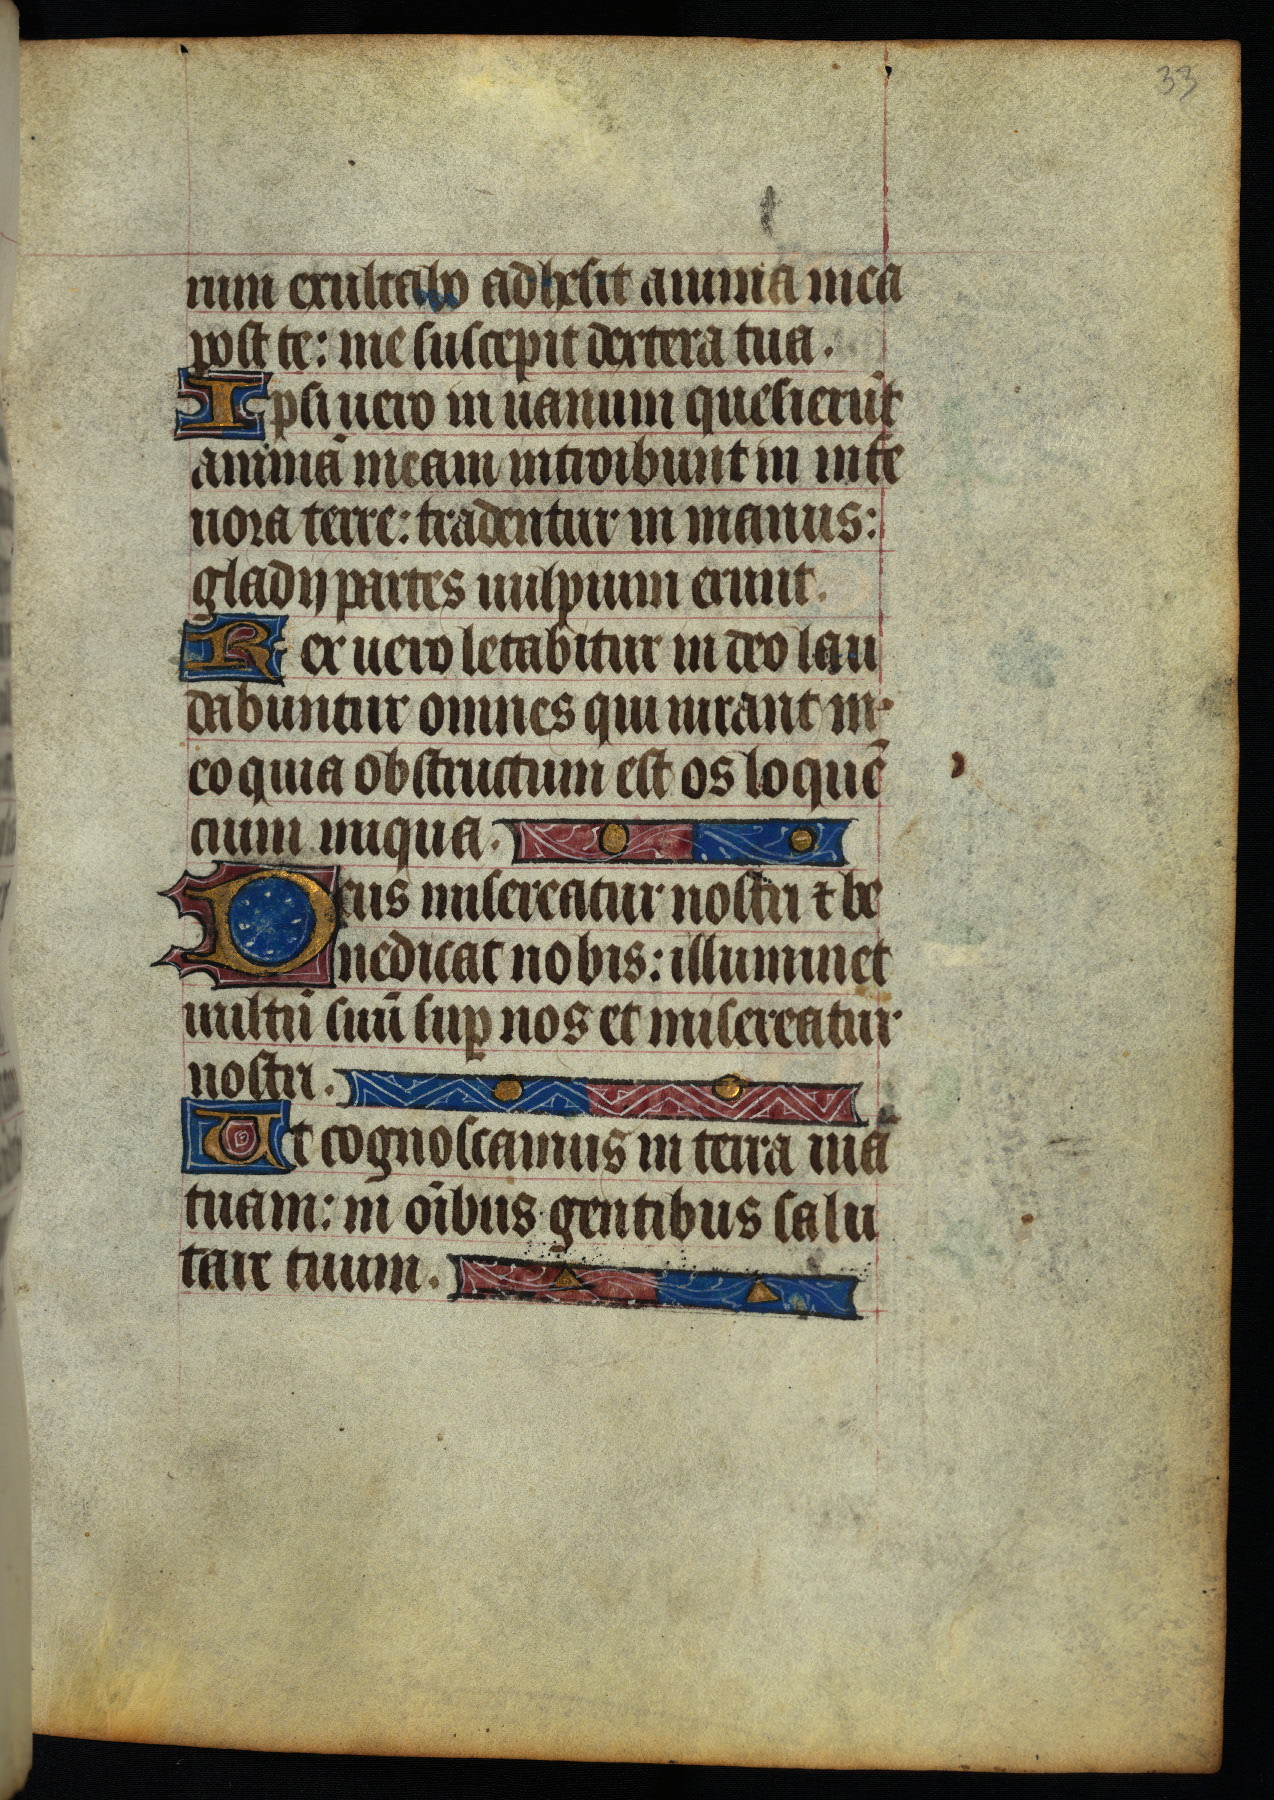 33
rum exultabo adhesit anima mea
post te: me suscepit dextera tua.
Ipsi uero in uanum quesierūt
animā meam introibunt in infe
riora terre: tradentur in manus:
gladij partes uulpium erunt.
Rex uero letabitur in deo lau
dabuntur omnes qui iurant in
eo quia obstructum est os loquē
cium iniqua.
Deus misereatur nostri ⁊ be
nedicat nobis: illuminet
uultū suū suꝑ nos et misereatur
nostri.
Ut cognoscamus in terra uiā
tuam: in oībus gentibus salu
tare tuum.